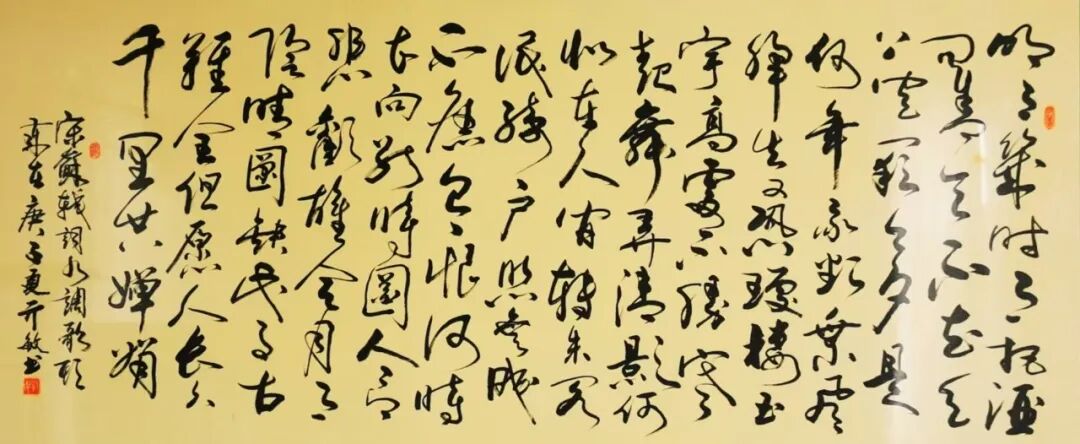 明月幾时有把酒
问青天不知天
上宫阙今夕是
何年我欲乘風
歸去又恐瓊楼玉
宇高處不勝寒
起舞弄清影何
似在人间转朱阁
低绮户照無眠
不應有恨何時
长向别時圆人有
悲歡離合月有
陰晴圓缺此事古
難全但愿人长久
千里共婵娟
宋蘇軾詞水调歌頭
庚子夏
敏书